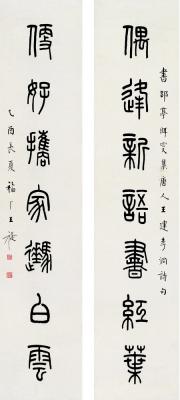 書郘亭眲叟集唐人王建李洞詩句
偶逢新語書紅葉
便好攜家白雲
乙酉長夏福厂王禔